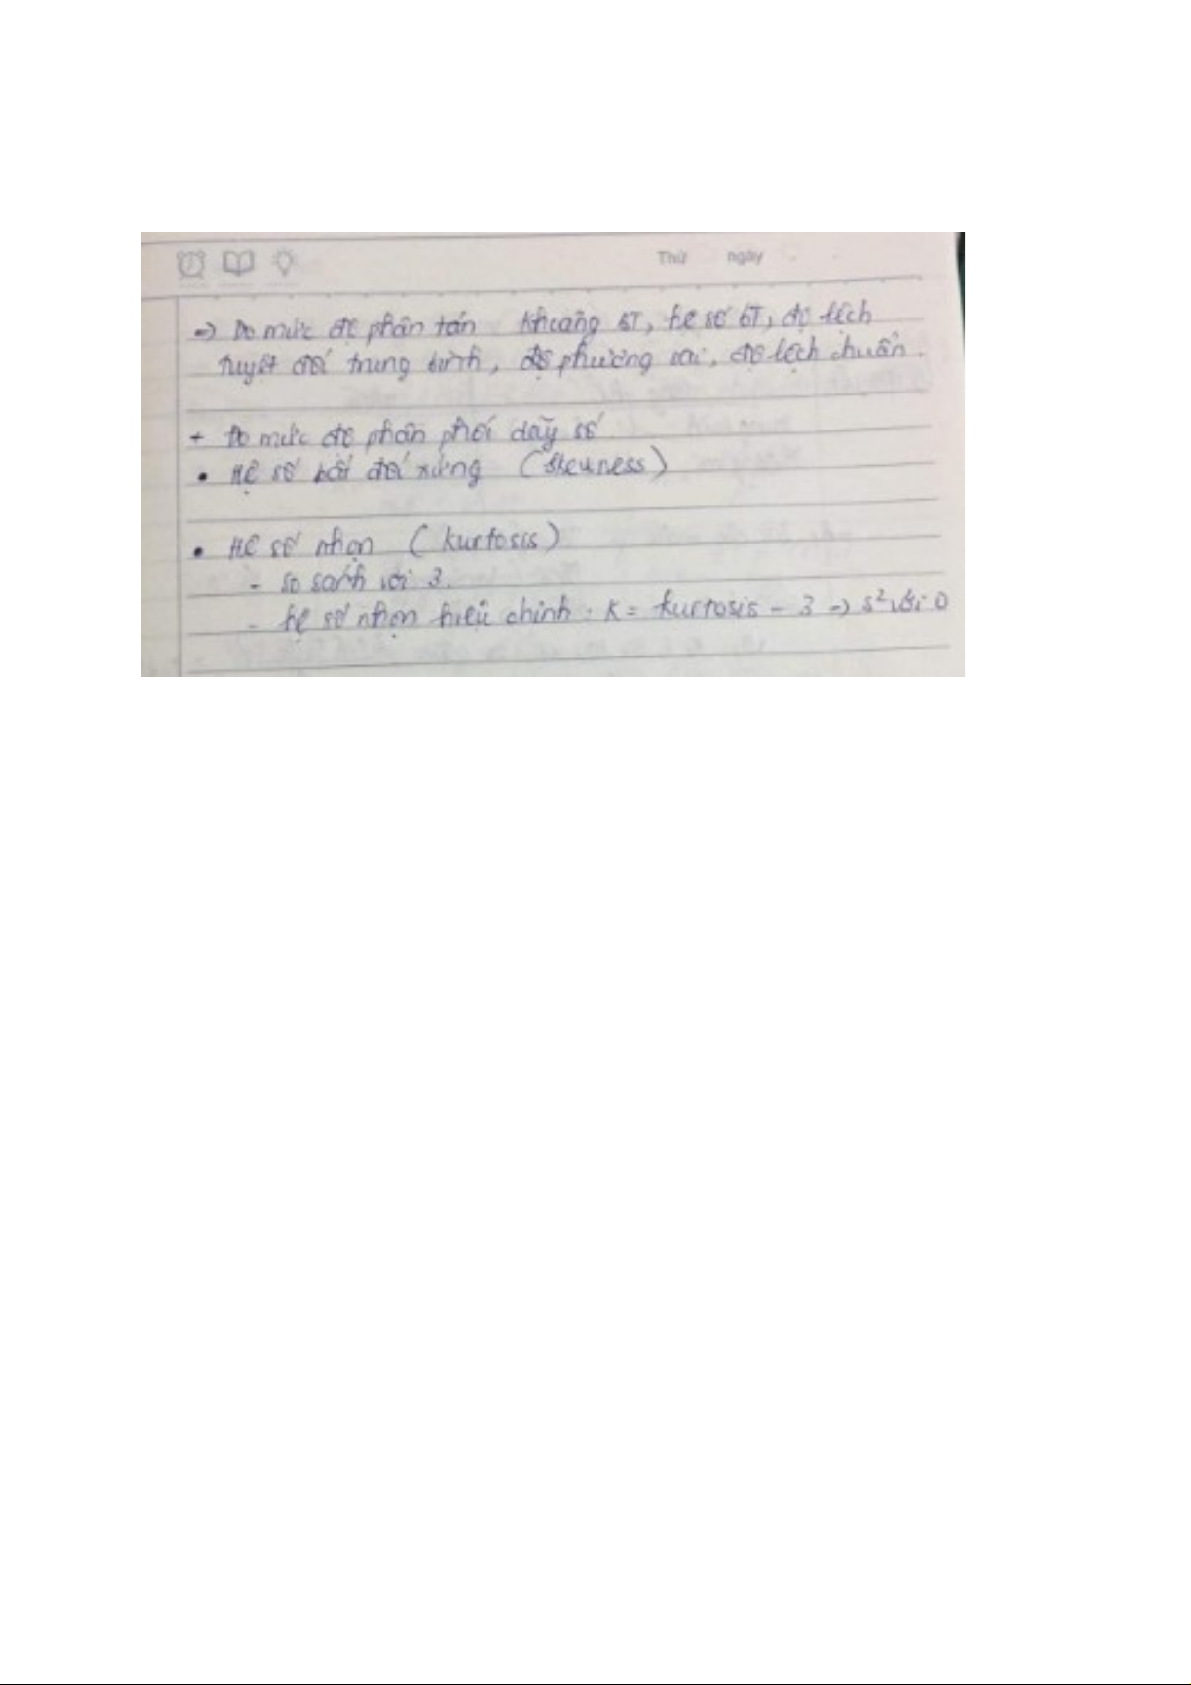 Thứ ngày
=> Đo mức độ phân tán khoảng BT, hệ số BT, độ lệch
tuyệt đối trung bình, độ phương sai, độ lệch chuẩn.
+ Đo mức độ phân phối dãy số.
• Hệ số bất đối xứng (Skewness)
• Hệ số nhọn (kurtosis)
- so sánh với 3.
- hệ số nhọn hiệu chỉnh: K = kurtosis - 3 => s² với 0